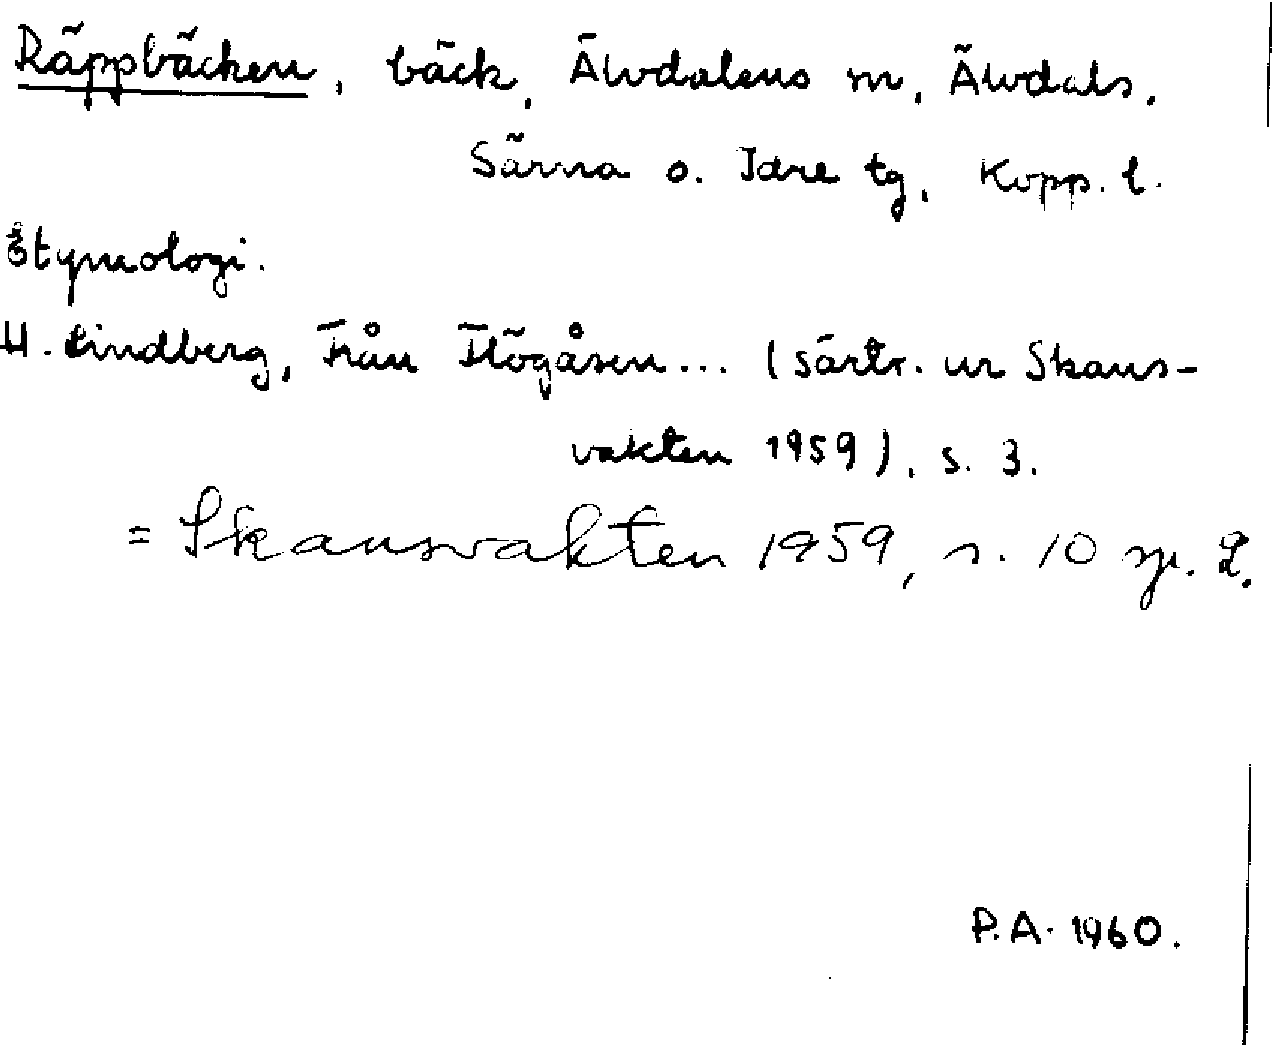 Räppbäcken, bäck, Älvdalens sn, Älvdals,
Särna o. Idre tg, Kopp. l.
Etymologi.
H. Lindberg, Från Flögåsen... (särtr. ur Skans-
vakten 1959), s. 3.
= Skansvakten 1959, s. 10 sp. 2.
P.A. 1960.